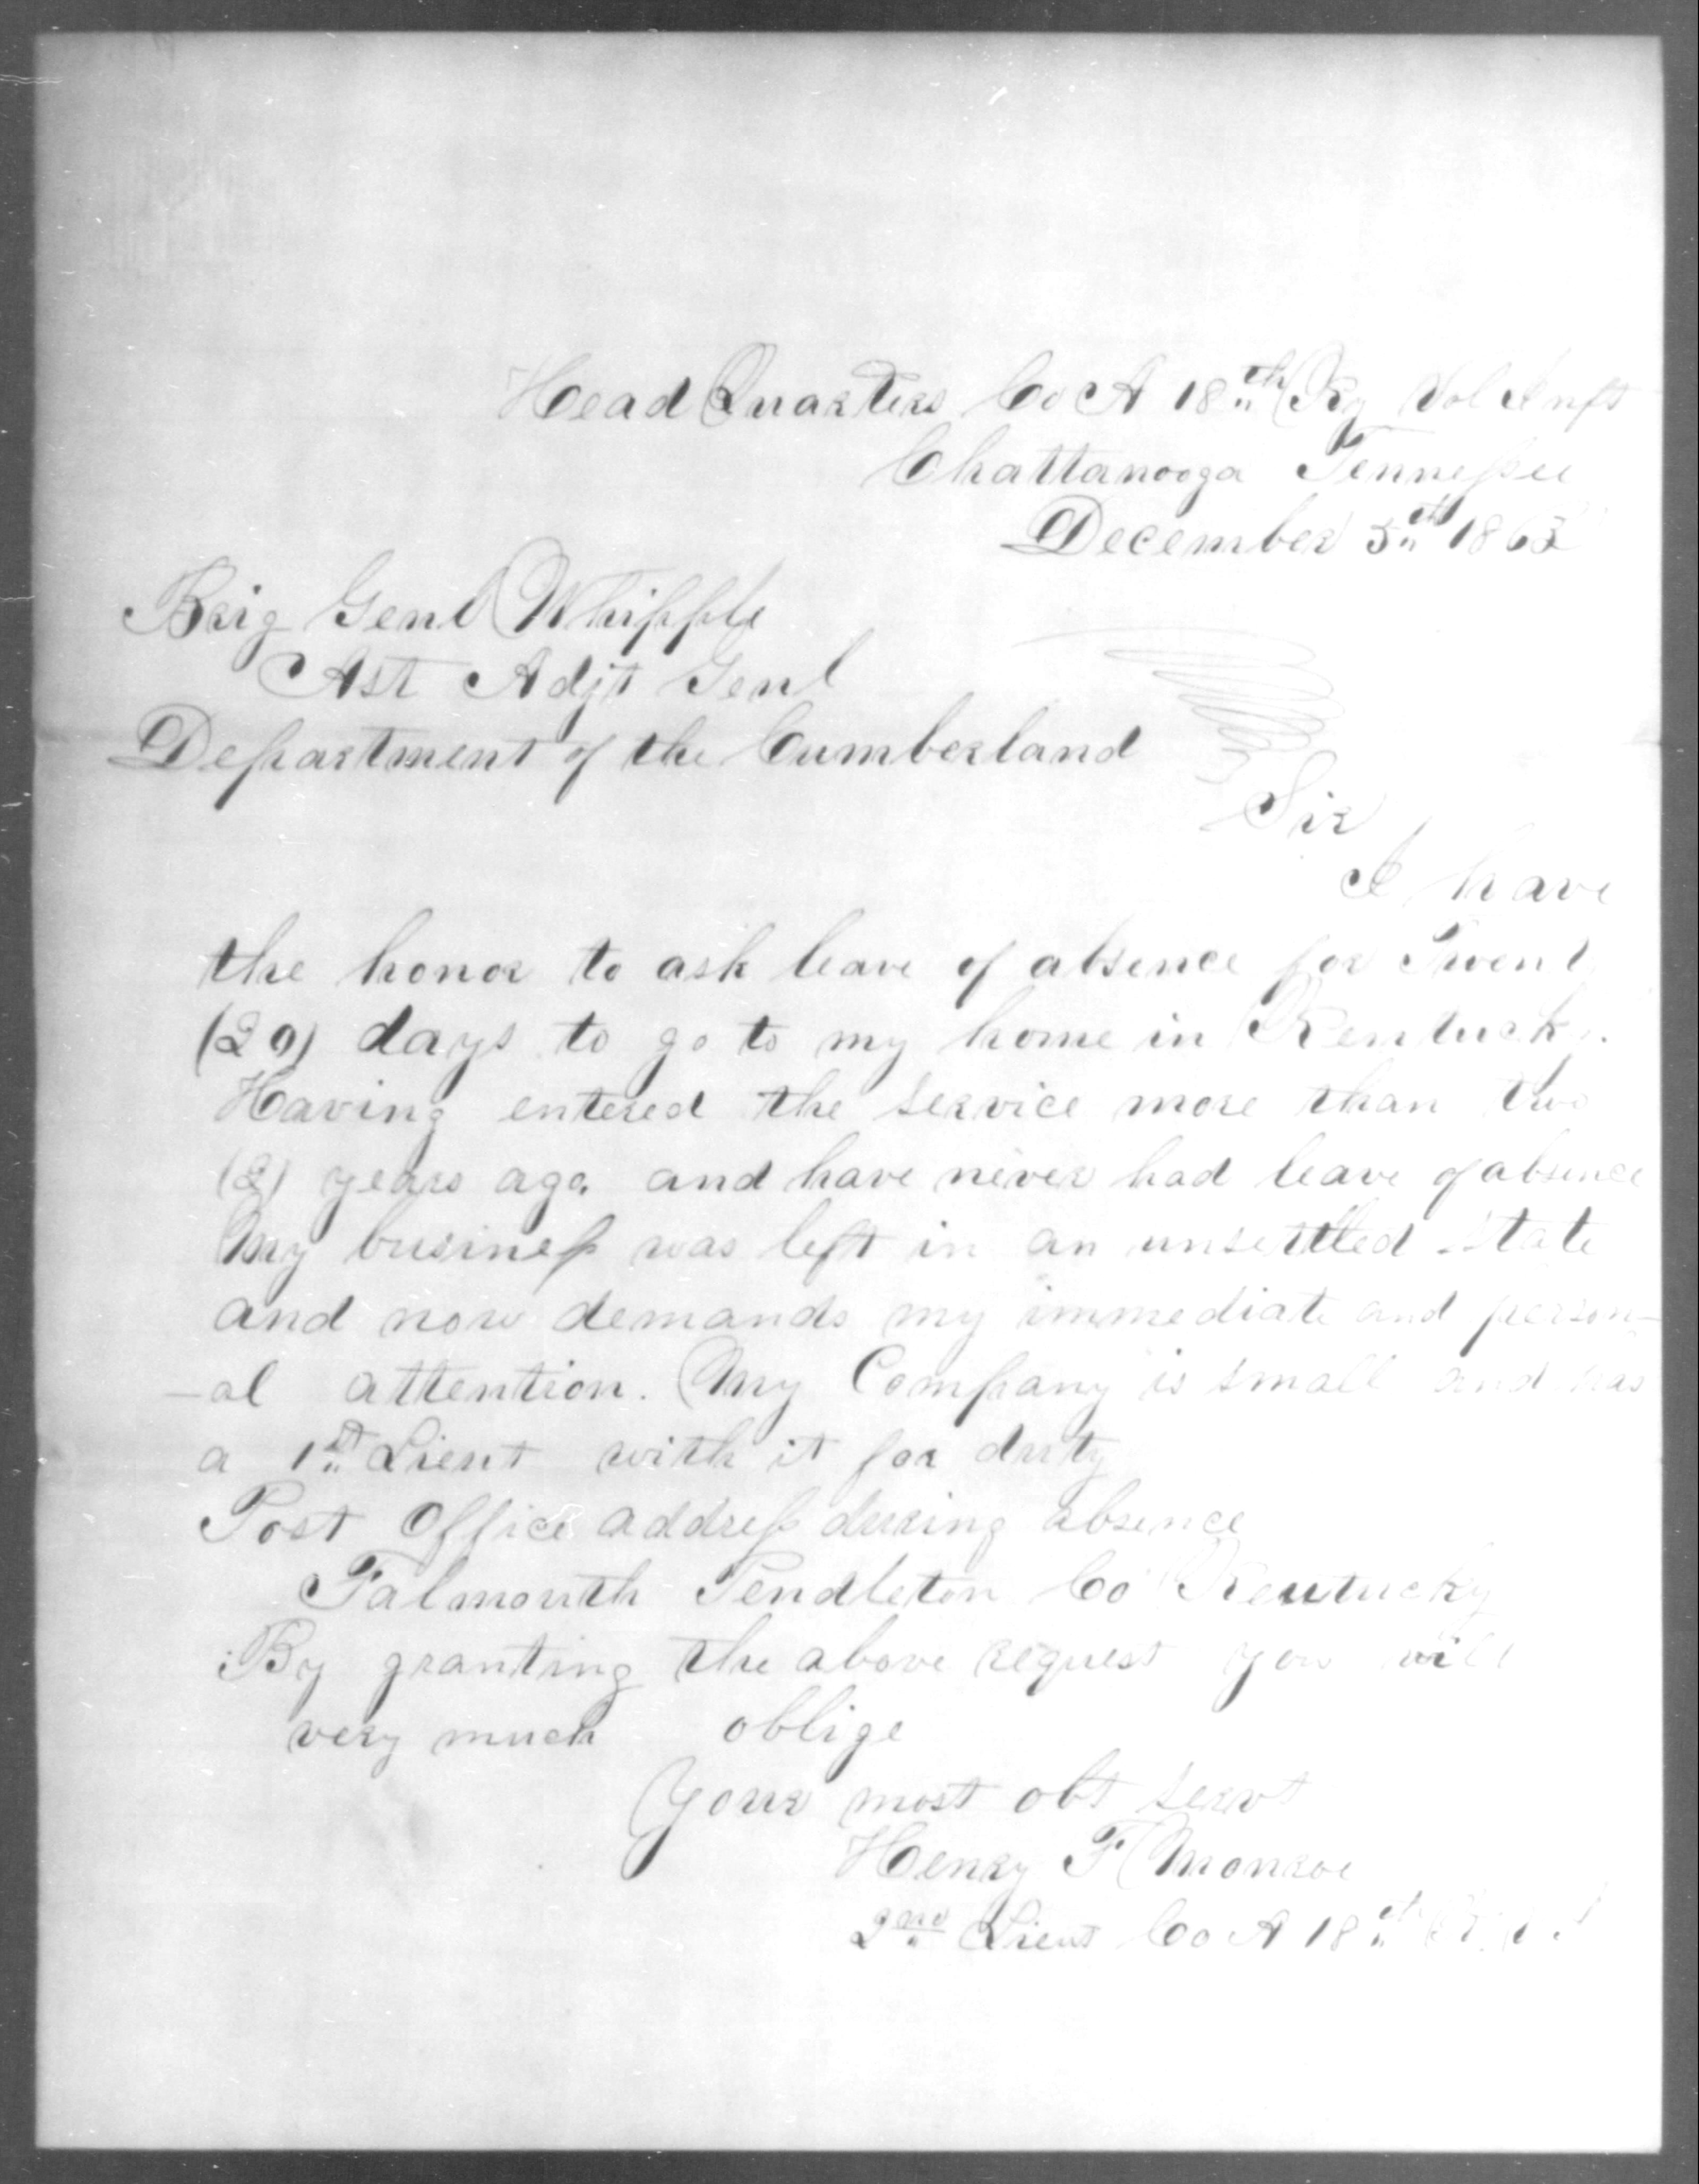 Head Quarters Co A 18th Ky Vol Inft
Chattanooga Tennessee
December 5th 1863
Brig Genl Whipple
Ast Adjt Genl
Department of the Cumberland
Sir
I have
the honor to ask leave of absence for Twenty
(20) days to go to my home in Kentucky.
Having entered the service more than two
(2) years ago. and have never had leave of absence
My business was left in an unsettled state
and now demands my immediate and person-
-al attention. My Company is small and has
a 1st Lieut with it for duty
Post Office address during absence
Falmouth Pendleton Co Kentucky
By granting the above request you will
very much oblige
Your most obt servt
Henry F Monroe
2nd Lieut Co A 18th